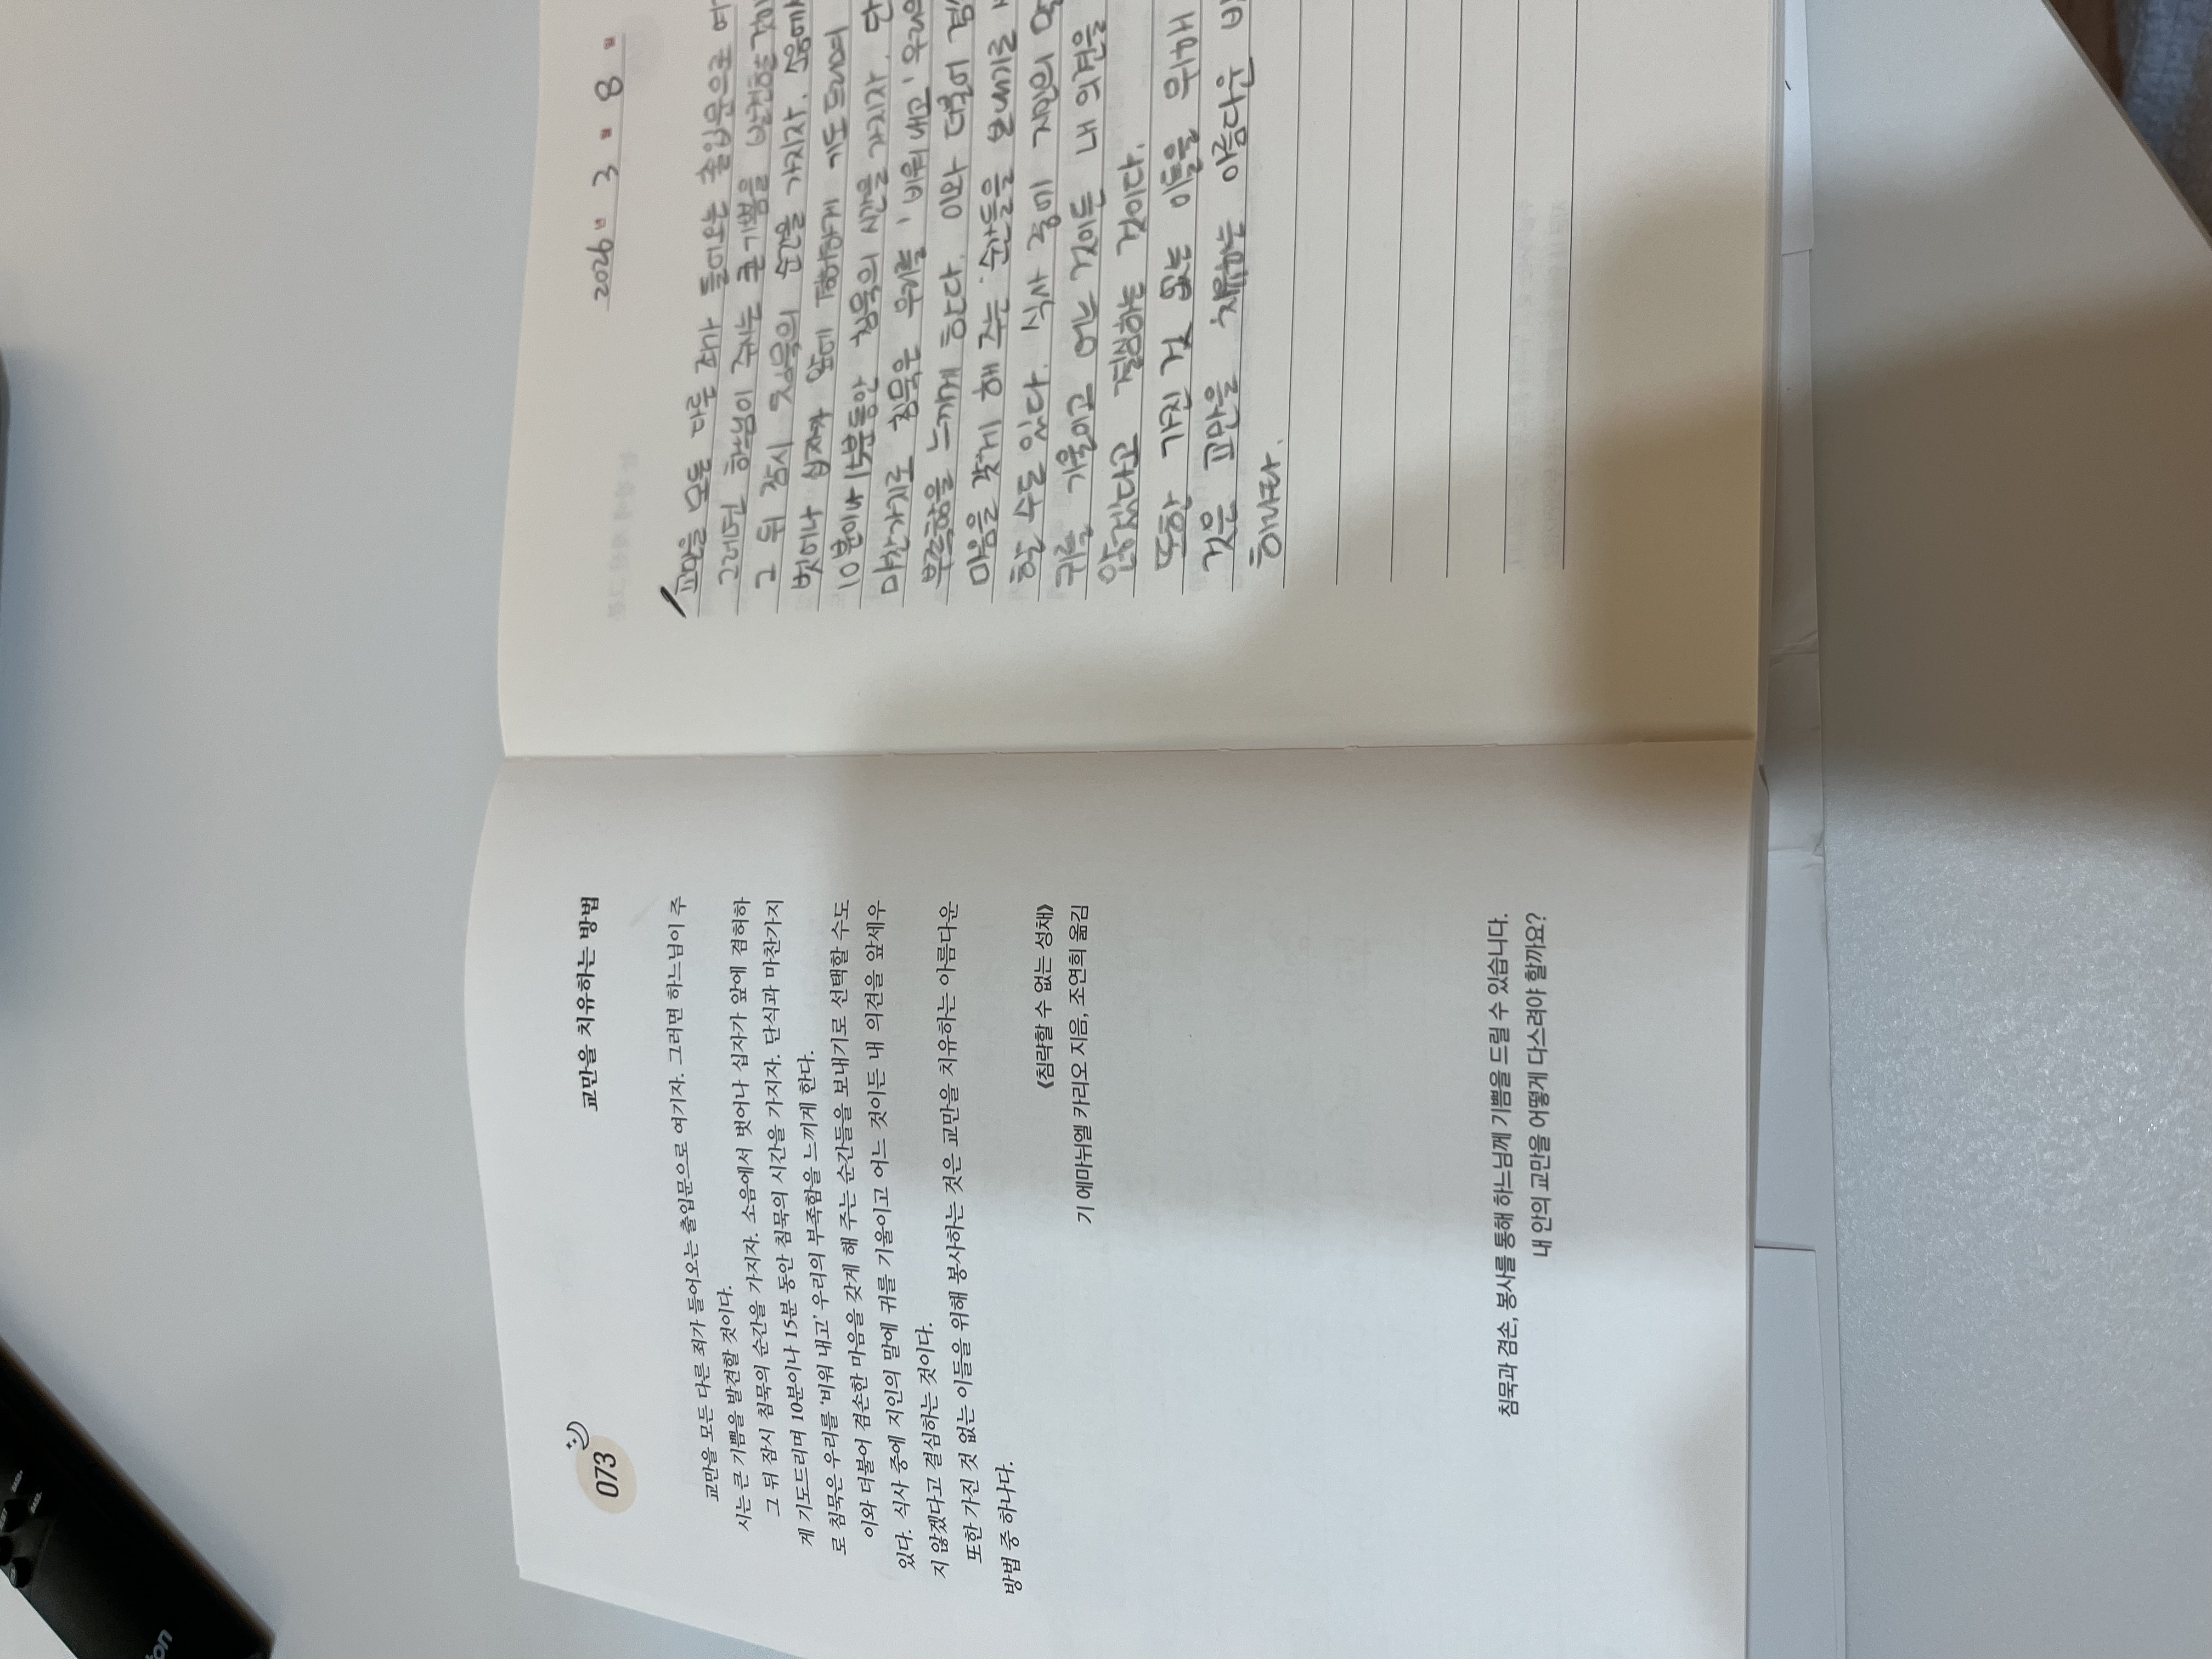 073
교만을 치유하는 방법
교만을 모든 다른 죄가 들어오는 출입문으로 여기자. 그러면 하느님이 주
시는 큰 기쁨을 발견할 것이다.
그 뒤 잠시 침묵의 순간을 가지자. 소음에서 벗어나 십자가 앞에 겸허하
게 기도드리며 10분이나 15분 동안 침묵의 시간을 가지자. 단식과 마찬가지
로 침묵은 우리를 '비워 내고' 우리의 부족함을 느끼게 한다.
이와 더불어 겸손한 마음을 갖게 해 주는 순간들을 보내기로 선택할 수도
있다. 식사 중에 지인의 말에 귀를 기울이고 어느 것이든 내 의견을 앞세우
지 않겠다고 결심하는 것이다.
또한 가진 것 없는 이들을 위해 봉사하는 것은 교만을 치유하는 아름다운
방법 중 하나다.
《침략할 수 없는 성채》
기 에마뉘엘 카리오 지음, 조연희 옮김
침묵과 겸손, 봉사를 통해 하느님께 기쁨을 드릴 수 있습니다.
내 안의 교만을 어떻게 다스려야 할까요?
2026 년 3 월 8 일
교만을 모든 다른 죄가 들어오는 출입문으로 여
그러면 하느님이 주시는 큰 기쁨을 발견할
그 뒤 잠시 침묵의 순간을 가지자. 소음에
벗어나 십자가 앞에 겸허하게 기도드리며
10분이나 15분 동안 침묵의 시간을 가지자. 단
마찬가지로 침묵은 우리를 '비워 내고'
부족함을 느끼게 한다. 이와 더불어 겸
마음을 갖게 해 주는 순간들을 보내기로
할 수도 있다. 식사 중에 지인의 말
귀를 기울이고 어느 것이든 내 의견을
않겠다고 결심하는 것이다.
또한 가진 것 없는 이들을 위해
것은 교만을 치유하는 아름다운
하나다.